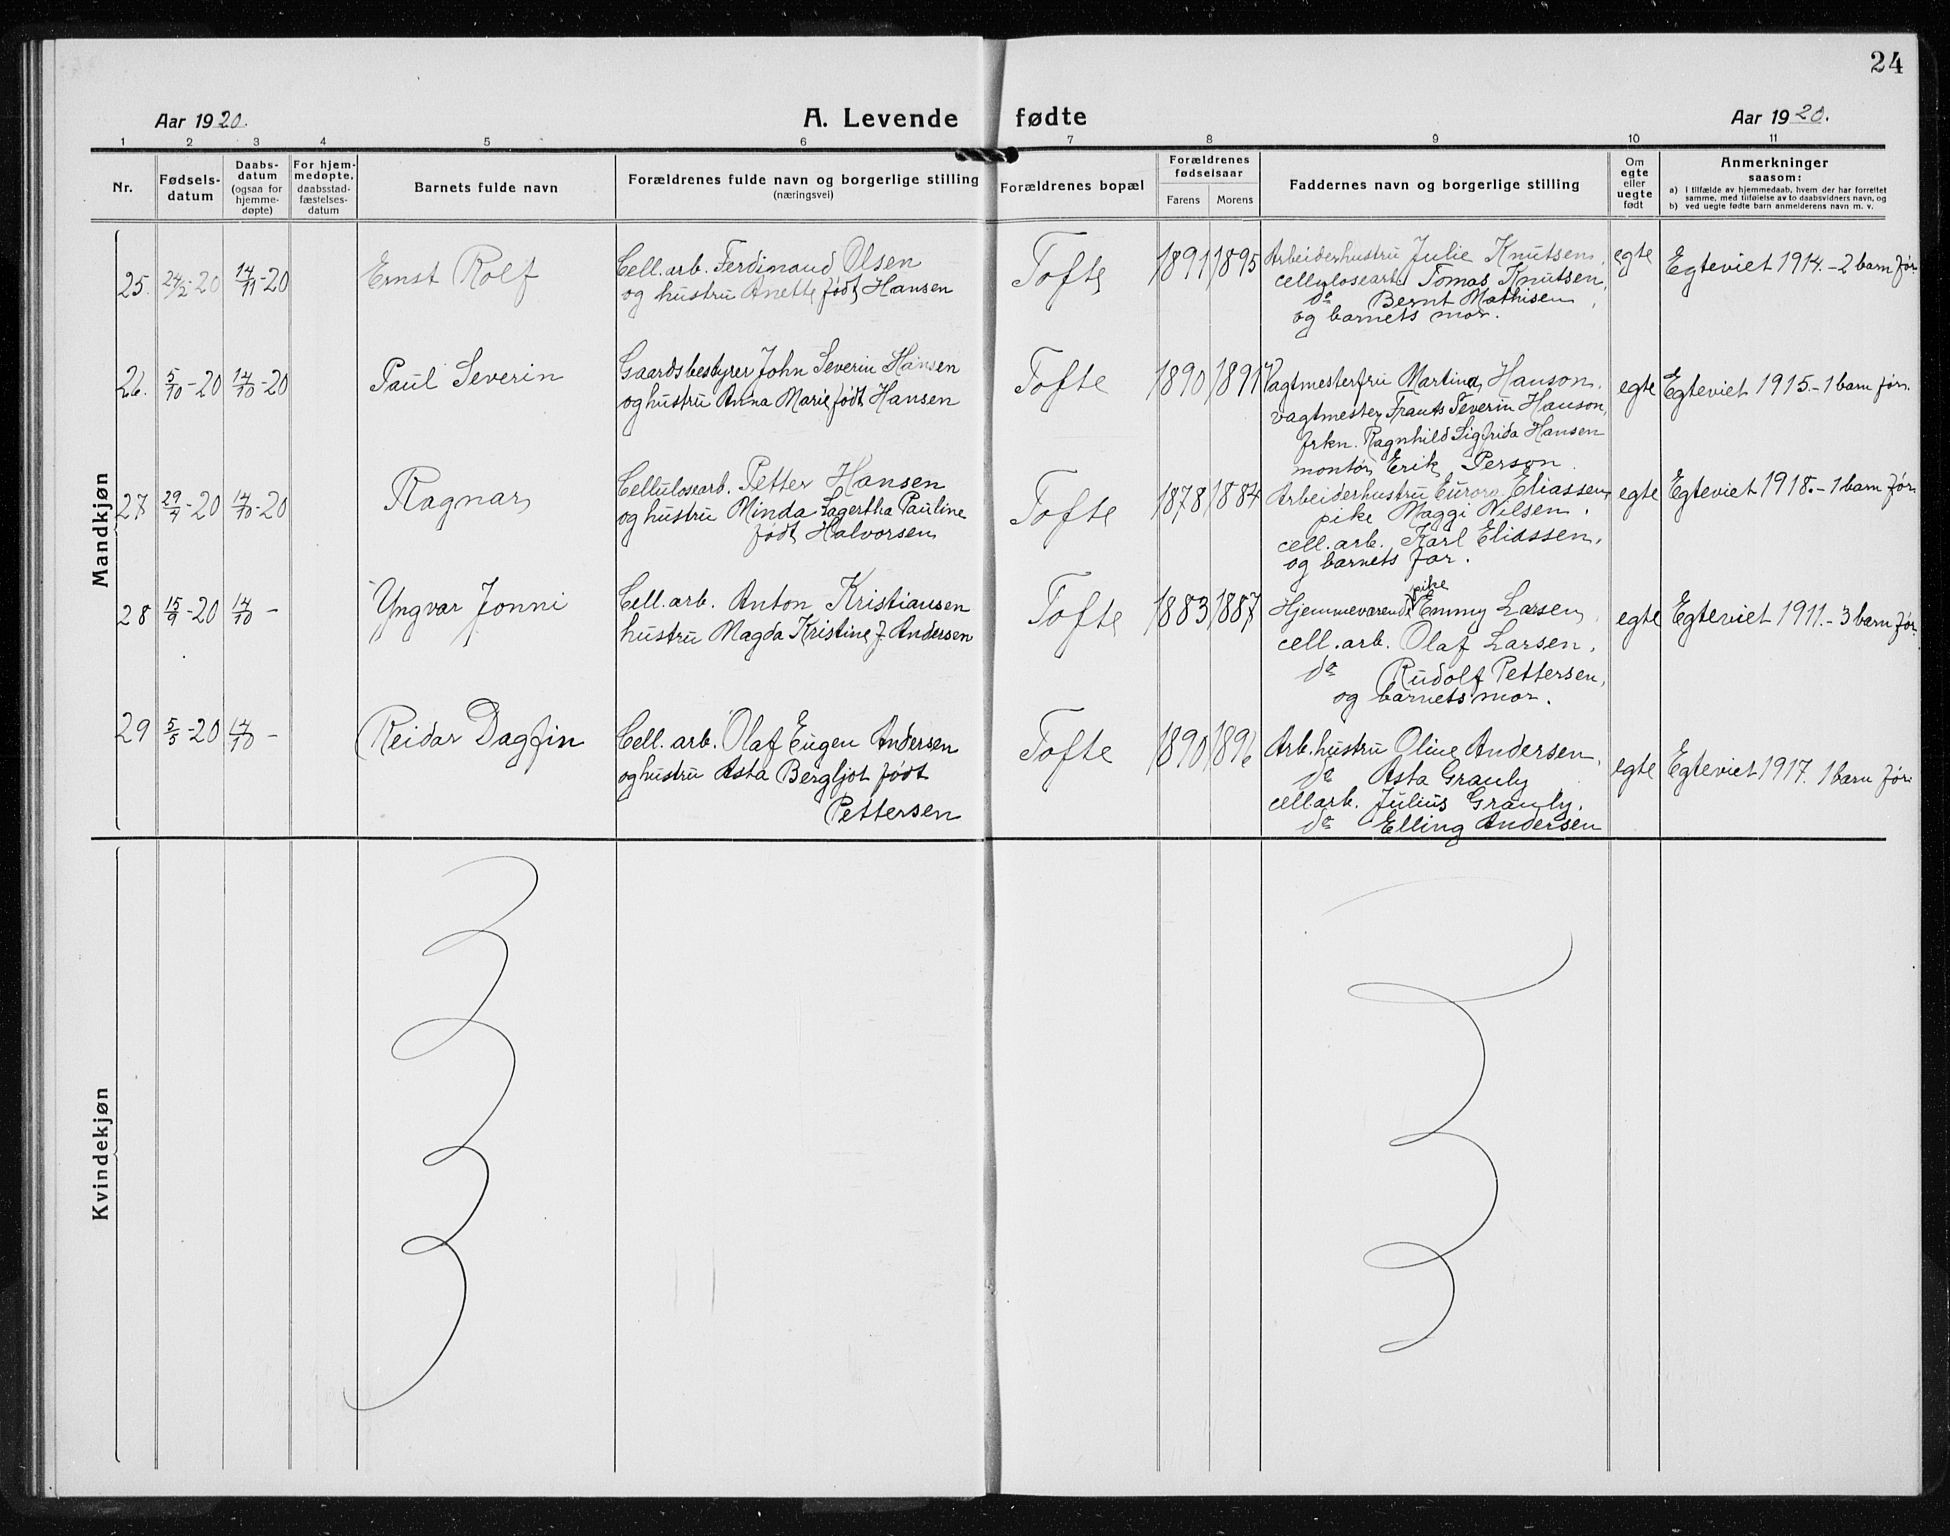 24
Aar 1920.
A. Levende fødte
Aar 1920.
1 2 3 4 5 6 7 8 9 10 11
Nr.
Fødsels-
datum
Daabs-
datum
(ogsaa for
hjemme-
døpte)
For hjem-
medøpte,
daabsstad-
fæstelses-
datum
Barnets fulde navn
Forældrenes fulde navn og borgerlige stilling
(næringsvei)
Forældrenes bopæl
Forældrenes
fødselsaar
Farens Morens
Faddernes navn og borgerlige stilling
Om
egte
eller
uegte
født
Anmerkninger
saasom:
a) I tilfælde av hjemmedaab, hvem der har forrettet
samme, med tilføielse av to daabsvidners navn, og
b) ved uegte fødte barn anmelderens navn m. v.
Mandkjøn
25. 24/2-20 14/11-20
Ernst Rolf
Cell. arb. Ferdinand Olsen
og hustru Anette født Hansen
Tofte
1891 1895
Arbeiderhustru Julie Knutsen,
cellulosearb. Tomas Knutsen,
do Bernt Mathisen,
og barnets mor.
egte
Egteviet 1914.-2 barn før.
26. 5/10-20 14/10-20
Paul Severin
Gaardsbestyrer John Severin Hansen
og hustru Anna Marie født Hansen
Tofte
1890 1891
Vagtmesterfru Martina Hanson,
vagtmester Frants Severin Hanson,
frkn. Ragnhild Sigfrida Hansen
montør Erik Person.
egte
Egteviet 1915.-1 barn før.
27 29/7-20 14/10-20
Ragnar
Cellulosearb. Petter Hansen
og hustru Minda Lagertha Pauline
født Halvorsen
Tofte
1878 1884
Arbeiderhustru Eurora Eliassen,
pike Maggi Nilsen,
cell. arb. Karl Eliassen,
og barnets far.
egte
Egteviet 1918.-1 barn før.
28 15/9-20 14/10 -
Yngvar Jonni
Cell. arb. Anton Kristiansen
hustru Magda Kristine f Andersen
Tofte
1883 1887
pike
Hjemmeværende Emmy Larsen,
cell. arb. Olaf Larsen,
do Rudolf Pettersen,
og barnets mor.
egte
Egteviet 1911.-3 barn før.
29 5/5-20 14/10 -
Reidar Dagfin
Cell. arb. Olaf Eugen Andersen
og hustru Asta Bergljot født
Pettersen
Tofte
1890 1896
Arb. hustru Oline Andersen,
do Asta Granly
cell arb. Julius Granly,
do Elling Andersen
egte
Egteviet 1917. 1 barn før.
Kvindekjøn